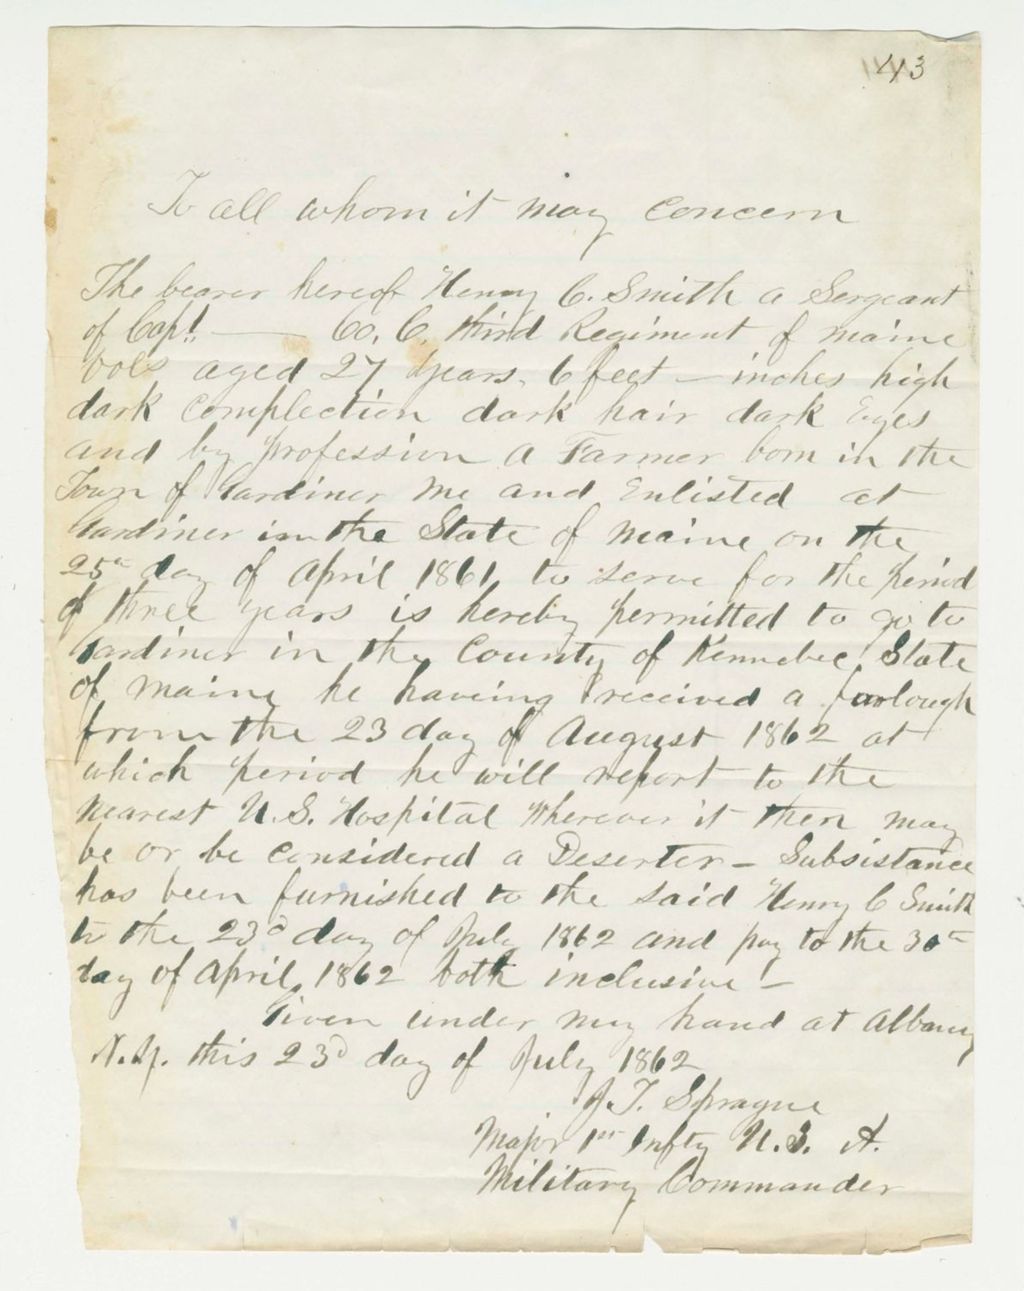 43
To all whom it may concern
The bearer hereof Henry C. Smith a Sergeant
of Capt. — Co. C. third Regiment of Maine
Vols aged 27 years. 6 feet — inches high
dark complection dark hair dark Eyes
and by profession a Farmer born in the
Town of Gardiner Me and Enlisted at
Gardiner in the State of Maine on the
25th day of April 1861, to serve for the period
of three years is hereby permitted to go to
Gardiner in the County of Kennebec, State
of Maine he haveing received a furlough
from the 23 day of August 1862 at
which period he will report to the
nearest U.S. Hospital Wherever it then may
be or be considered a Deserter - Subsistance
has been furnished to the said Henry C Smith
to the 23d day of July 1862 and pay to the 30th
day of April, 1862 both inclusive -
Given under my hand at Albany
N.Y. this 23d day of July 1862
J. T. Sprague
Major 1st Infty U.S. A.
Military Commander